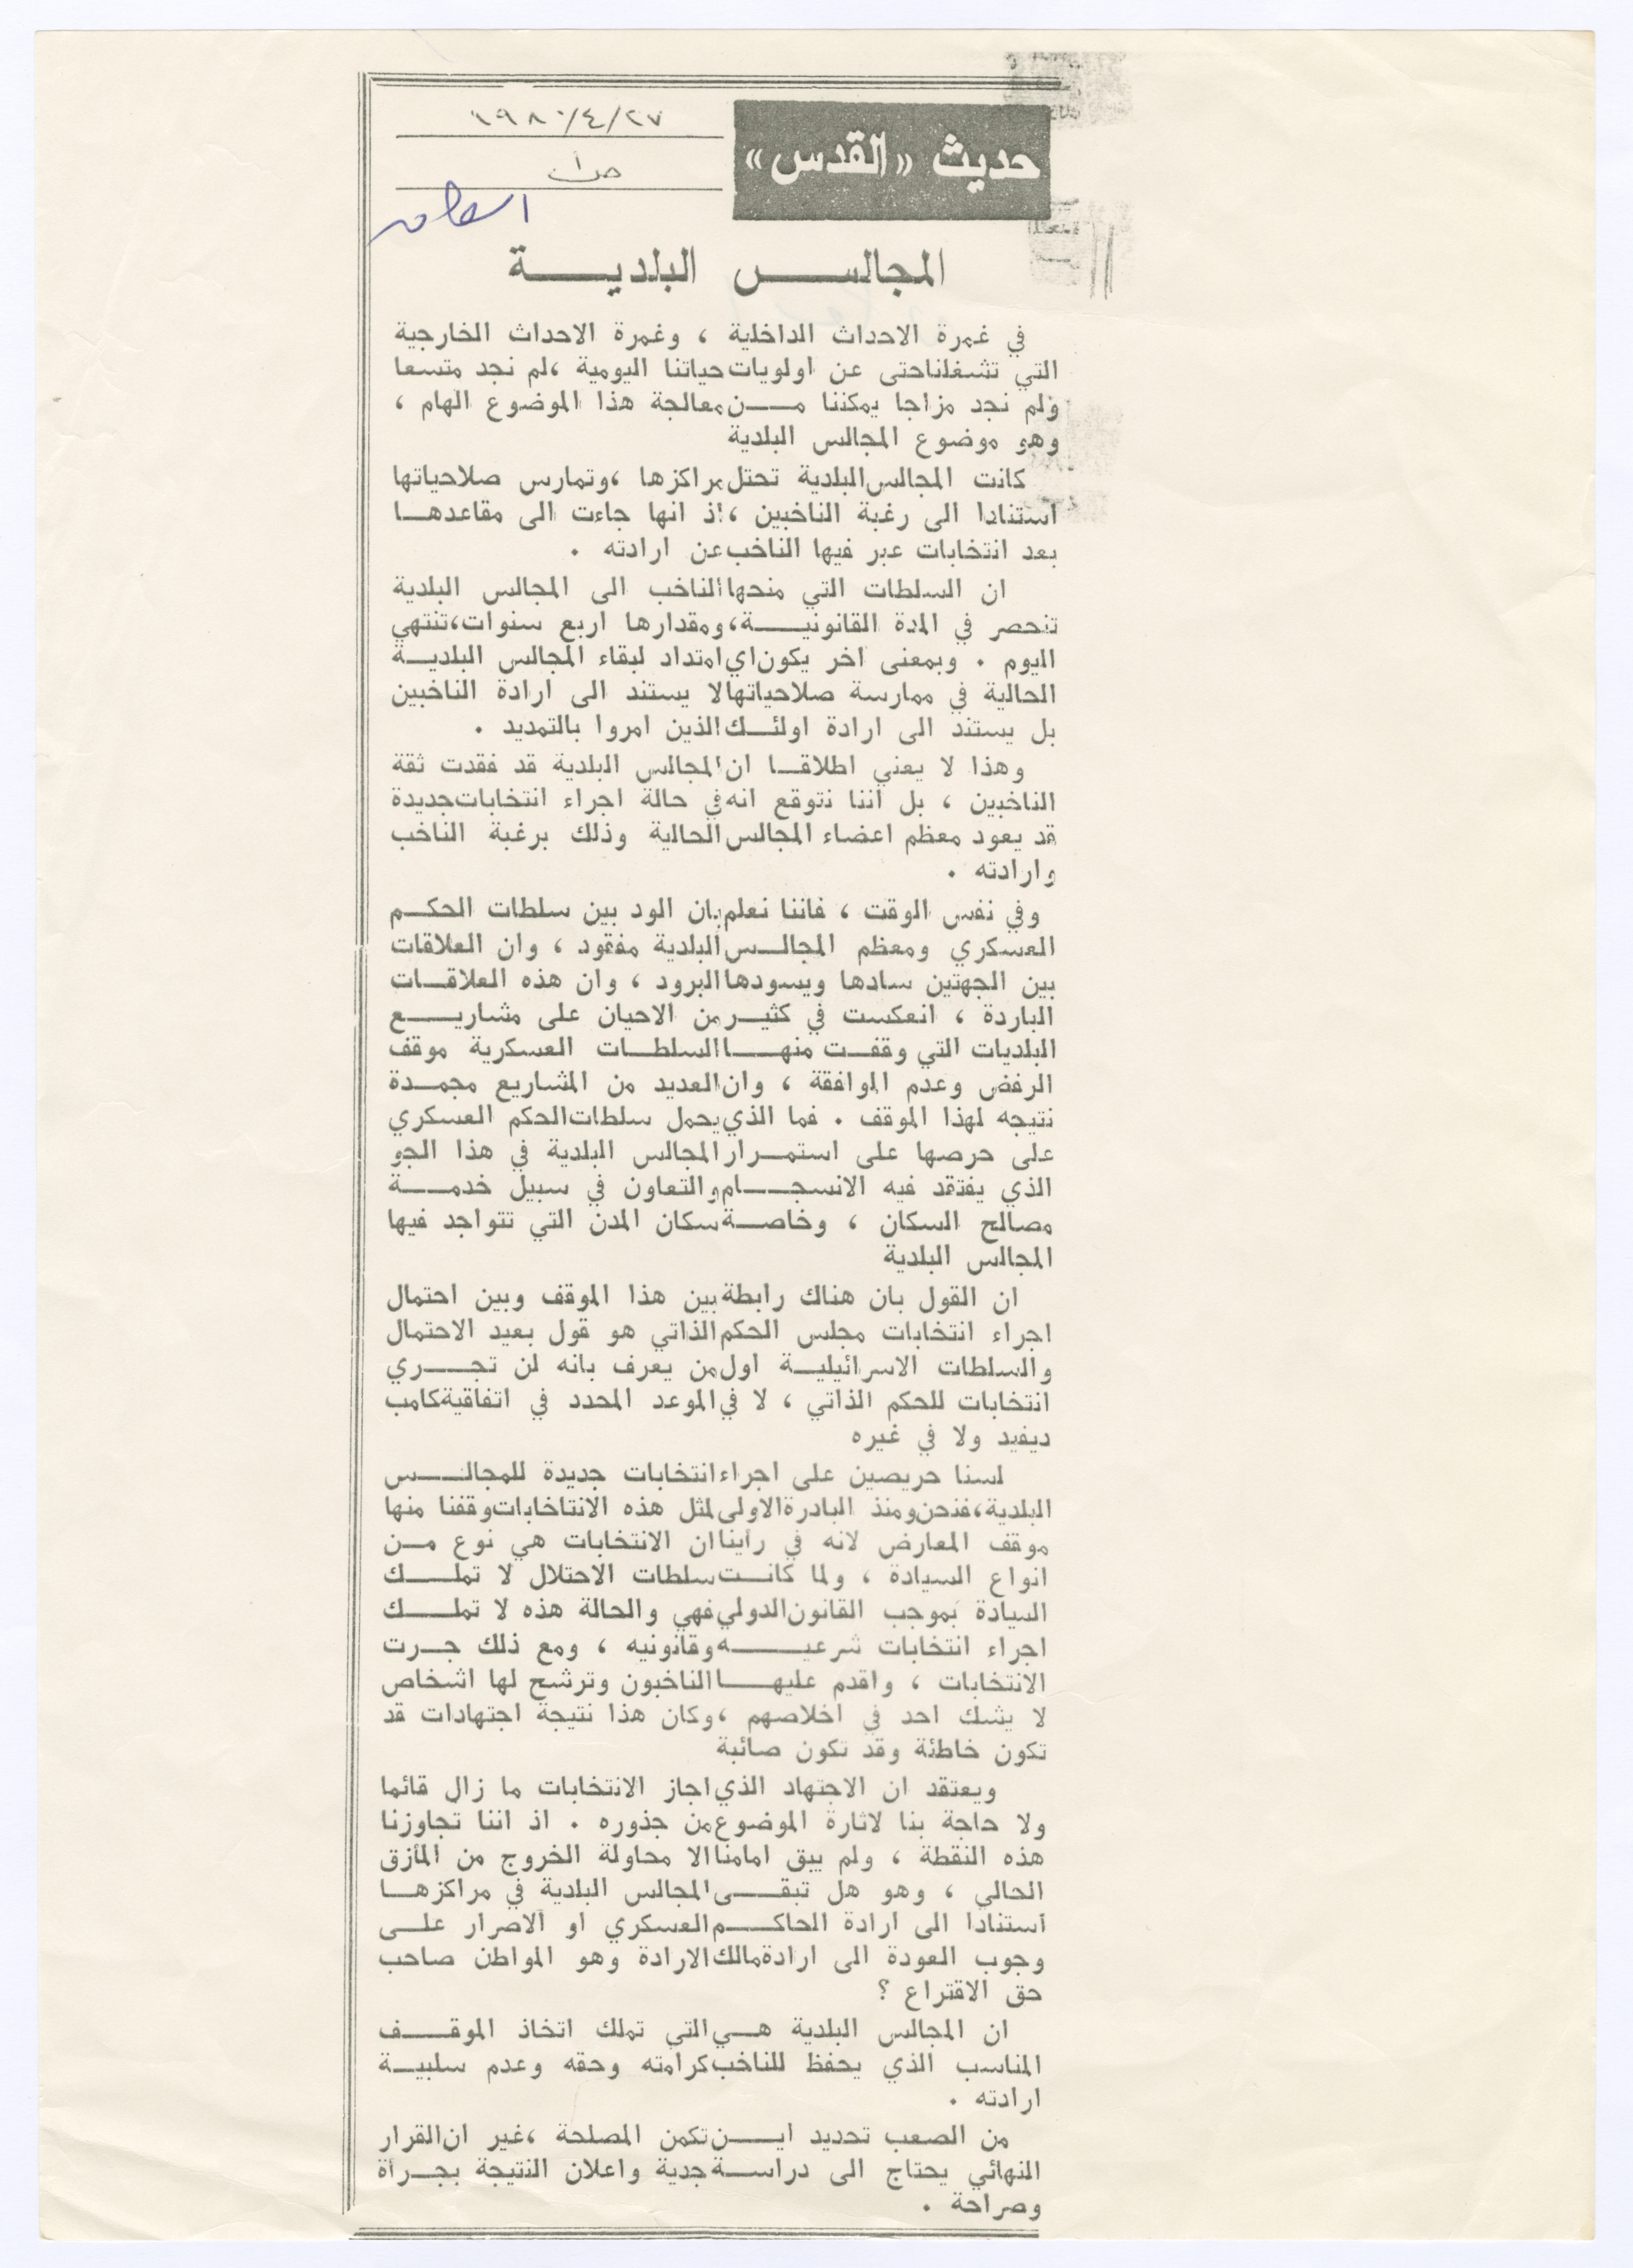 حديث «القدس»
١٩٨٠/٤/٢٧
ص١
المجالس البلدية
في غمرة الاحداث الداخلية ، وغمرة الاحداث الخارجية
التي تشغلنا حتى عن اولويات حياتنا اليومية ، لم نجد متسعا
ولم نجد مزاجا يمكننا من معالجة هذا الموضوع الهام ،
وهو موضوع المجالس البلدية
كانت المجالس البلدية تحتل مراكزها ، وتمارس صلاحياتها
استنادا الى رغبة الناخبين ، اذ انها جاءت الى مقاعدها
بعد انتخابات عبر فيها الناخب عن ارادته .
ان السلطات التي منحها الناخب الى المجالس البلدية
تنحصر في المدة القانونية ، ومقدارها اربع سنوات ، تنتهي
اليوم . وبمعنى اخر يكون اي امتداد لبقاء المجالس البلدية
الحالية في ممارسة صلاحياتها لا يستند الى ارادة الناخبين
بل يستند الى ارادة اولئك الذين امروا بالتمديد .
وهذا لا يعني اطلاقا ان المجالس البلدية قد فقدت ثقة
الناخبين ، بل اننا نتوقع انه في حالة اجراء انتخابات جديدة
قد يعود معظم اعضاء المجالس الحالية وذلك برغبة الناخب
وارادته .
وفي نفس الوقت ، فاننا نعلم بان الود بين سلطات الحكم
العسكري ومعظم المجالس البلدية مفقود ، وان العلاقات
بين الجهتين سادها ويسودها البرود ، وان هذه العلاقات
الباردة ، انعكست في كثير من الاحيان على مشاريع
البلديات التي وقفت منها السلطات العسكرية موقف
الرفض وعدم الموافقة ، وان العديد من المشاريع مجمدة
نتيجه لهذا الموقف . فما الذي يحمل سلطات الحكم العسكري
على حرصها على استمرار المجالس البلدية في هذا الجو
الذي يفتقد فيه الانسجام والتعاون في سبيل خدمة
مصالح السكان ، وخاصة سكان المدن التي تتواجد فيها
المجالس البلدية
ان القول بان هناك رابطة بين هذا الموقف وبين احتمال
اجراء انتخابات مجلس الحكم الذاتي هو قول بعيد الاحتمال
والسلطات الاسرائيلية اول من يعرف بانه لن تجري
انتخابات للحكم الذاتي ، لا في الموعد المحدد في اتفاقية كامب
ديفيد ولا في غيره
لسنا حريصين على اجراء انتخابات جديدة للمجالس
البلدية ، فنحن ومنذ البادرة الاولى لمثل هذه الانتاخابات وقفنا منها
موقف المعارض لانه في رأينا ان الانتخابات هي نوع من
انواع السيادة ، ولما كانت سلطات الاحتلال لا تملك
السيادة بموجب القانون الدولي فهي والحالة هذه لا تملك
اجراء انتخابات شرعيه وقانونيه ، ومع ذلك جرت
الانتخابات ، واقدم عليها الناخبون وترشح لها اشخاص
لا يشك احد في اخلاصهم ، وكان هذا نتيجة اجتهادات قد
تكون خاطئة وقد تكون صائبة
ويعتقد ان الاجتهاد الذي اجاز الانتخابات ما زال قائما
ولا حاجة بنا لاثارة الموضوع من جذوره . اذ اننا تجاوزنا
هذه النقطة ، ولم يبق امامنا الا محاولة الخروج من المأزق
الحالي ، وهو هل تبقى المجالس البلدية في مراكزها
استنادا الى ارادة الحاكم العسكري او الاصرار على
وجوب العودة الى ارادة مالك الارادة وهو المواطن صاحب
حق الاقتراع ؟
ان المجالس البلدية هي التي تملك اتخاذ الموقف
المناسب الذي يحفظ للناخب كرامته وحقه وعدم سلبية
ارادته .
من الصعب تحديد اين تكمن المصلحة ، غير ان القرار
النهائي يحتاج الى دراسة جدية واعلان النتيجة بجرأة
وصراحة .